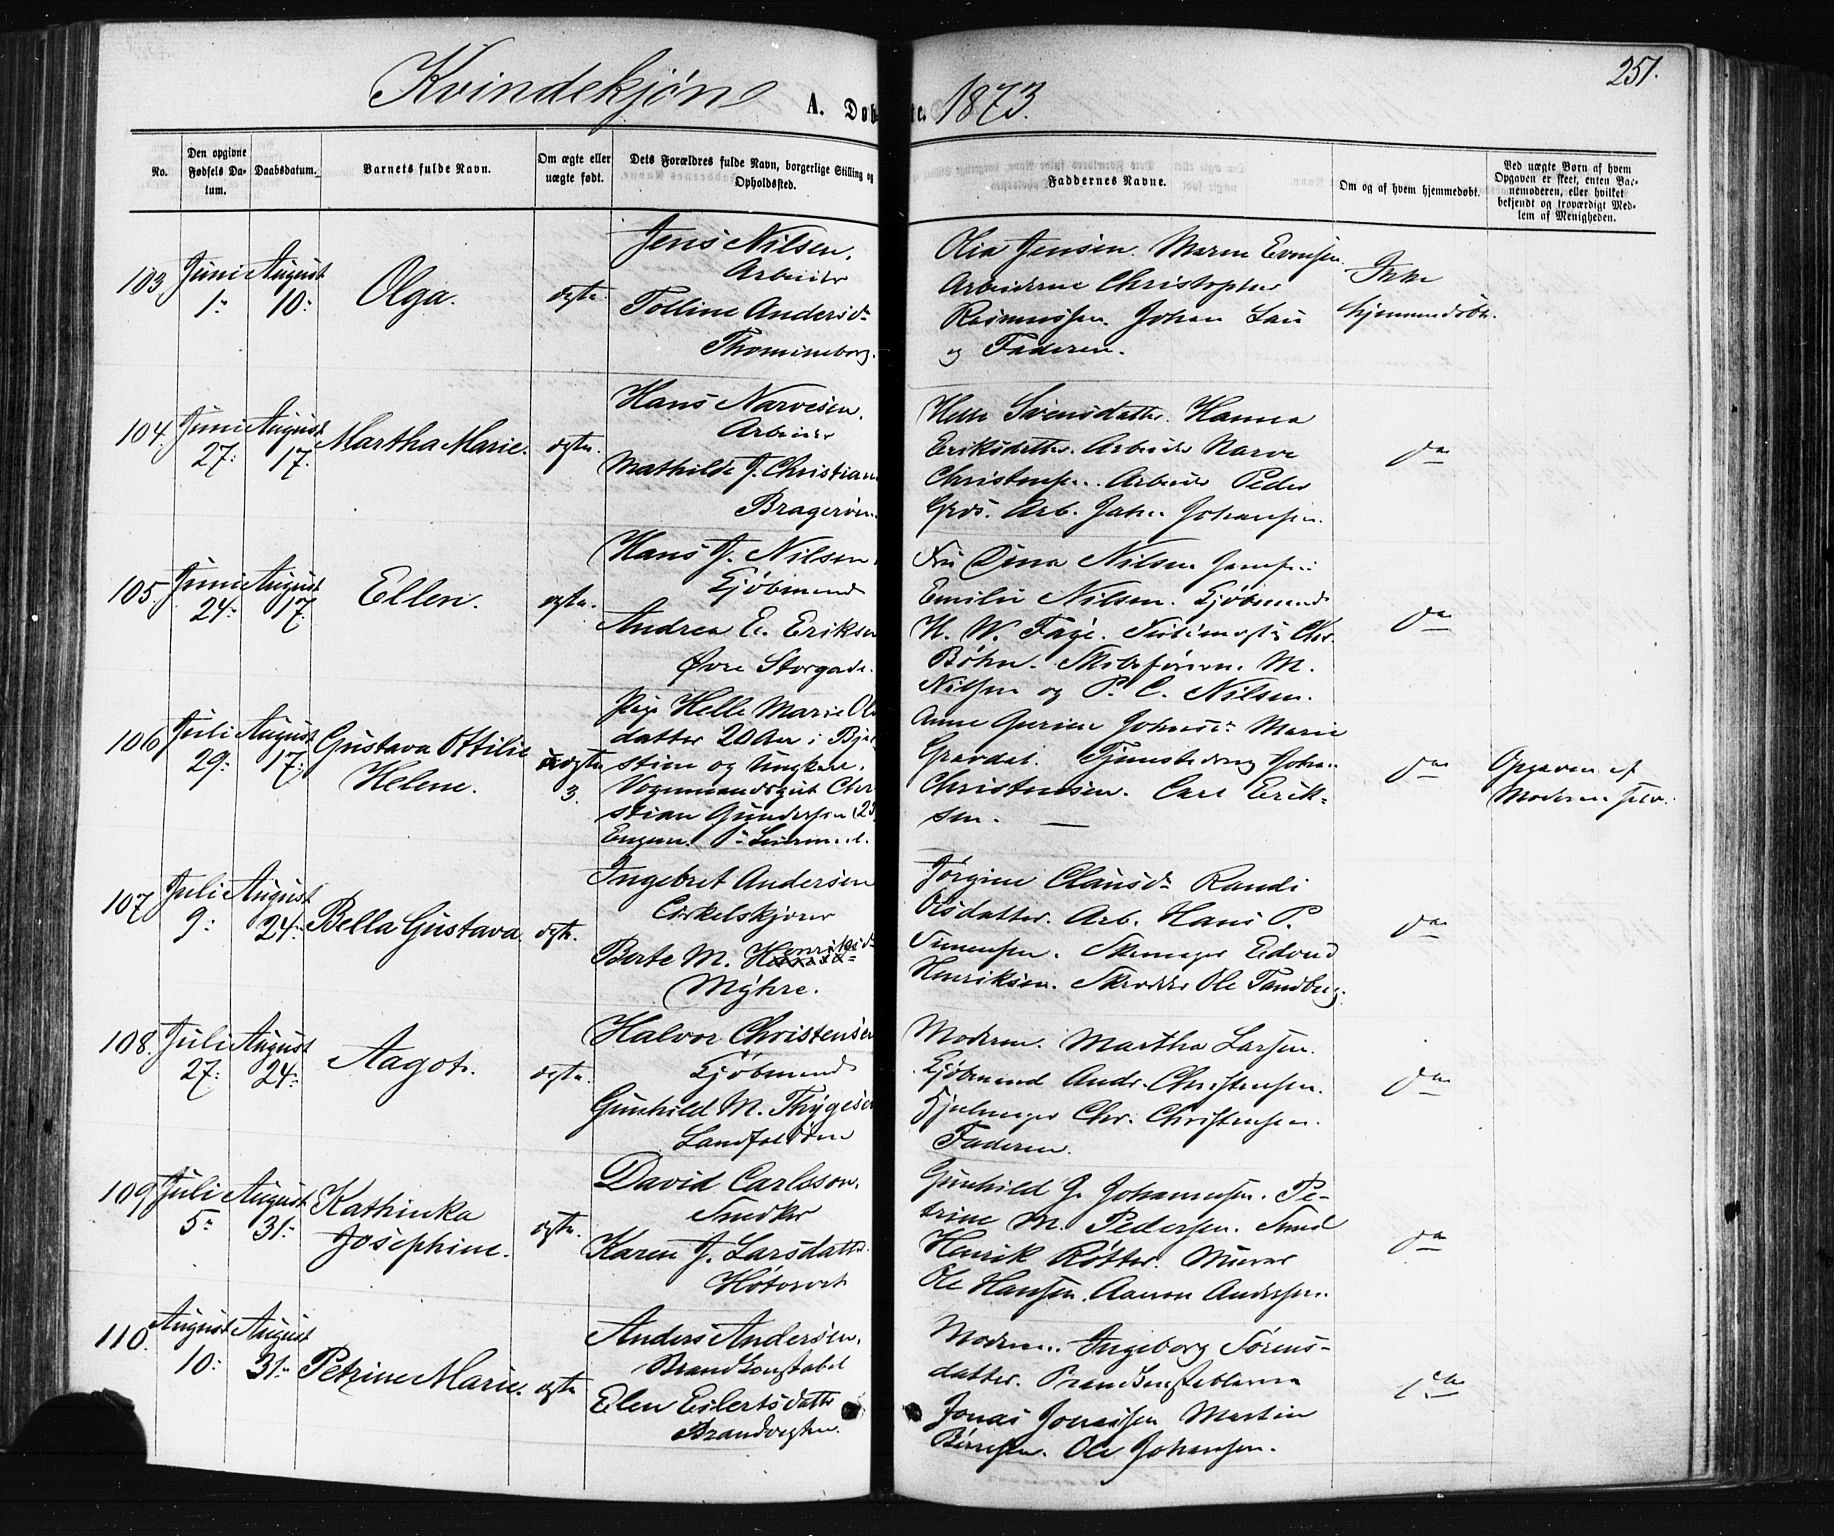 251.
Kvindekjøn A. Døb te. 1873.
No.
Den opgivne Fødsels Datum.
Daabsdatum.
Barnets fulde Navn.
Om ægte eller uægte født.
Dets Forældres fulde Navn, borgerlige Stilling og Opholdssted.
Faddernes Navne.
Om og af hvem hjemmedøbt.
Ved uægte Børn af hvem Opgaven er skeet, enten Barnemoderen, eller hvilket bekjendt og troværdigt Medlem af Menigheden.
103 Juni 1: August 10: Olga. ægte.
Jens Nilsen.
Arbeider
Tolline Andersd.
Thomineborg.
Olia Jensen. Maren Evensen.
Arbeiderne Christopher
Rasmussen. Johan Lau
og Faderen.
Ikke
hjemmedøbt.
104. Juni 27: August 17: Martha Marie. ægte.
Hans Narvesen.
Arbeider
Mathilde J. Christian
Bragerøen.
Helle Svensdatter. Hanna
Eriksdatter. Arbeider Narve
Christensen. Arbeider Peder
Arb. Johansen.
da
105. Juni 24: August 17. Ellen. ægte.
Hans J. Nilsen,
Kjøbmand
Andrea E. Eriksen
Øvre Storgade.
Fru Dina Nilsen
Emilie Nilsen. Kjøbmand
Chr.
Bøhn. M.
Nilsen og P. C. Nilsen.
da
106 Juli 29: August 17: Gustava Ottilie
Helene.
uægte
3.
Pige Helle Marie Ols
datter 20 Aar i
og Ungkarl.
Vognmandsgut Chr
stian Gundersen (23
Anne Gurine Marie
Gravdal. Tjenestedreng Johan
Christensen. Carl Erik-
sen. —
da
Opgaven af
Moderen selv.
107 Juli 9: August 24: Bella Gustava ægte.
Ingebret Andersen
Cirkelskjærer
Berte M. Henriksd
Myhre.
Jørgine Clausd. Randi
Olsdatter. Arb. Hans P.
Simensen. Edvard
Henriksen. Skrædder Ole Tandberg.
da
108. Juli 27: August 24: Aagot. ægte.
Halvor Christensen
Kjøbmand
Gunhild M. Thygesen
Landfaldøen
Moderen. Martha Larsen.
Kjøbmand Andr. Christensen.
Hjulmager Chr. Christensen.
Faderen.
da
109 Juli 5: August 31: Kathinka
Josephine. ægte.
David Carlsson.
Smedker
Karen J. Larsdatter.
Høtorvet
Gunhild G. Johannesen. Pe-
trine M. Pedersen. Smed
Henrik Røtter. Murer
Ole Hansen. Aaron Andersen.
da
110. August 10: August 31: Petrine Marie. ægte
Anders Andersen.
Brandkonstabel
Elen Eilertsdatter
Brandvagten.
Moderen. Ingeborg Sørens-
datter. Brandkonstablerne
Jonas Jonassen Martin
Ole Johansen.
da